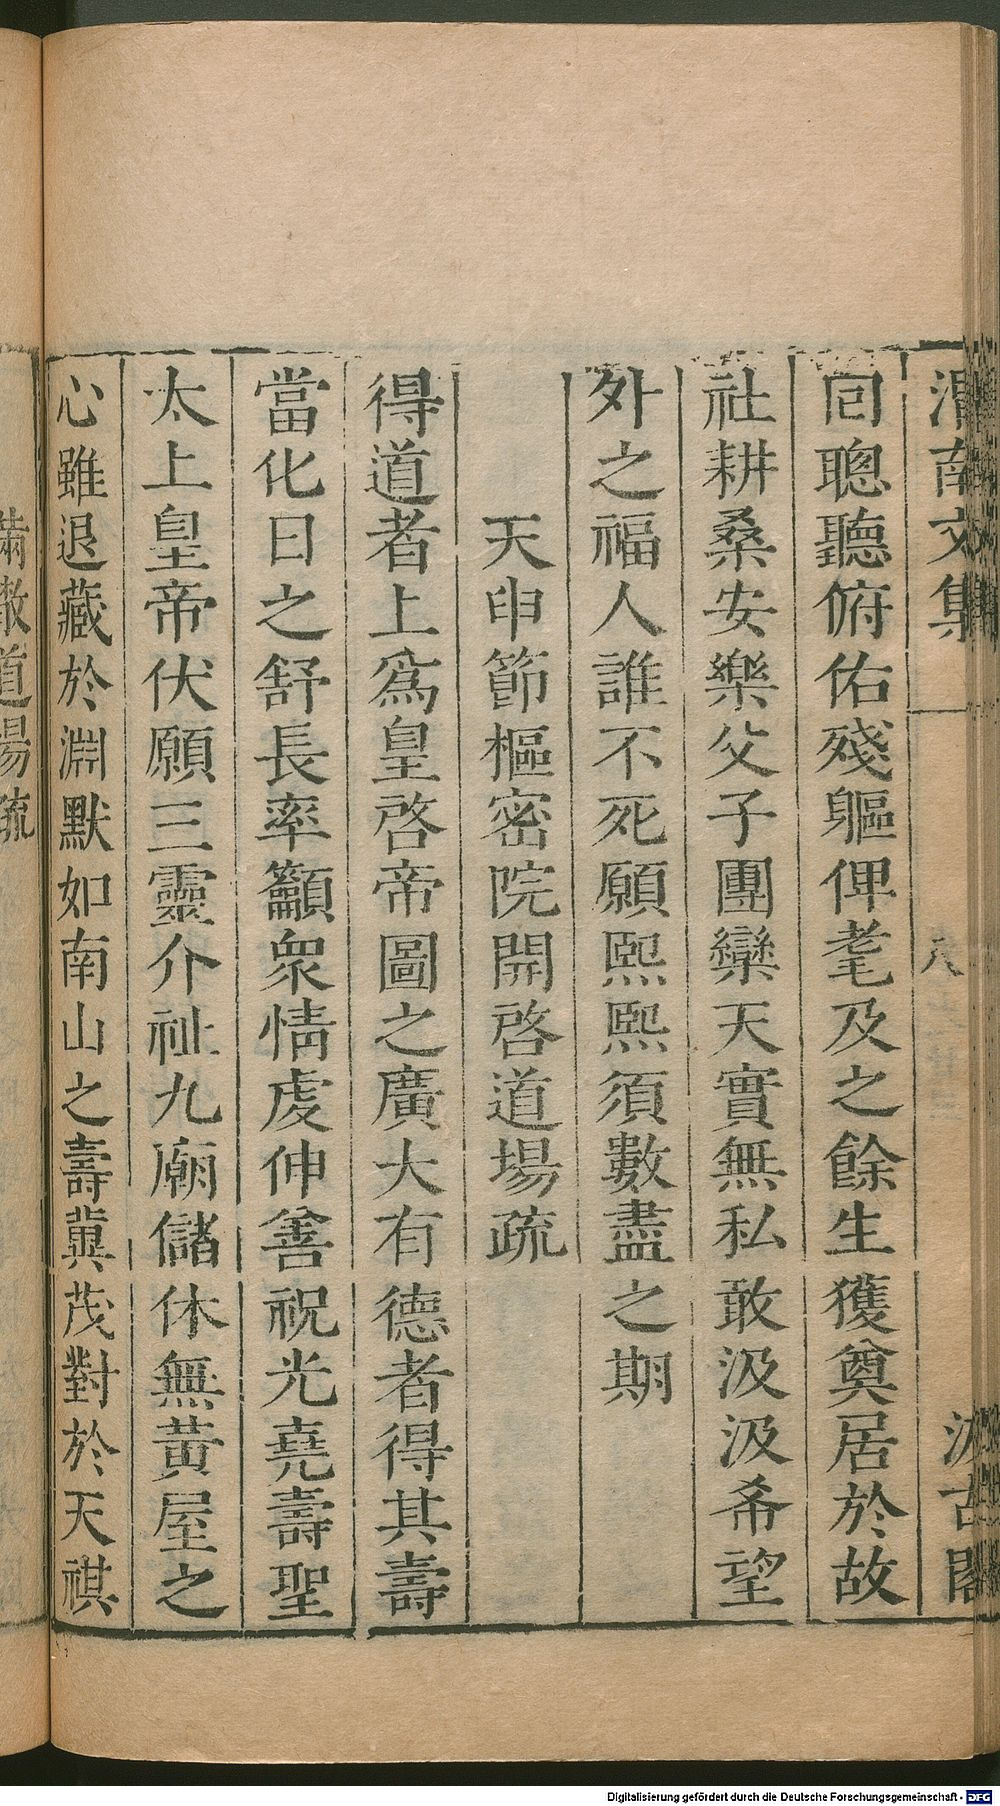 渭南文集 八 汲古閣
回聰聽俯佑殘軀俾耄及之餘生獲奠居於故
社耕桑安樂父子團欒天實無私敢汲汲希望
外之福人誰不死願熙熙須數盡之期
天申節樞密院開啓道場疏
得道者上爲皇啓帝圖之廣大有德者得其壽
當化日之舒長率籲衆情虔伸善祝光堯壽聖
太上皇帝伏願三靈介祉九廟儲休無黃屋之
心雖退藏於淵默如南山之壽冀茂對於天祺
滿散道場疏
Digitalisierung gefördert durch die Deutsche Forschungsgemeinschaft - DFG